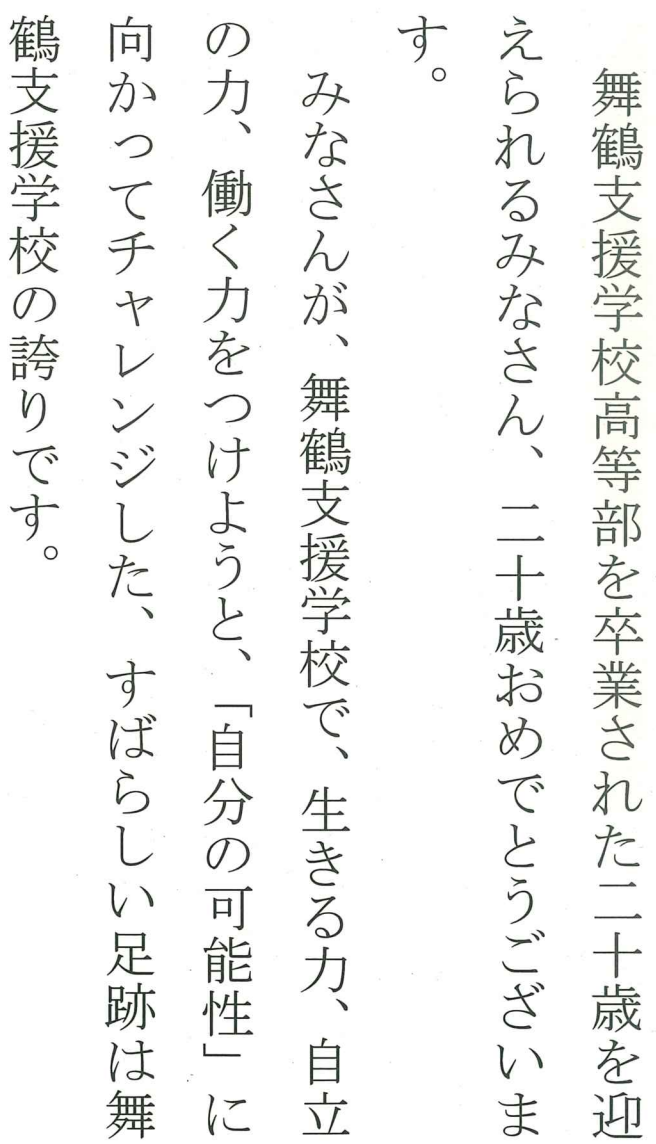 舞鶴支援学校高等部を卒業された二十歳を迎
えられるみなさん、二十歳おめでとうございま
す。
みなさんが、舞鶴支援学校で、生きる力、自立
の力、働く力をつけようと、「自分の可能性」に
向かってチャレンジした、すばらしい足跡は舞
鶴支援学校の誇りです。